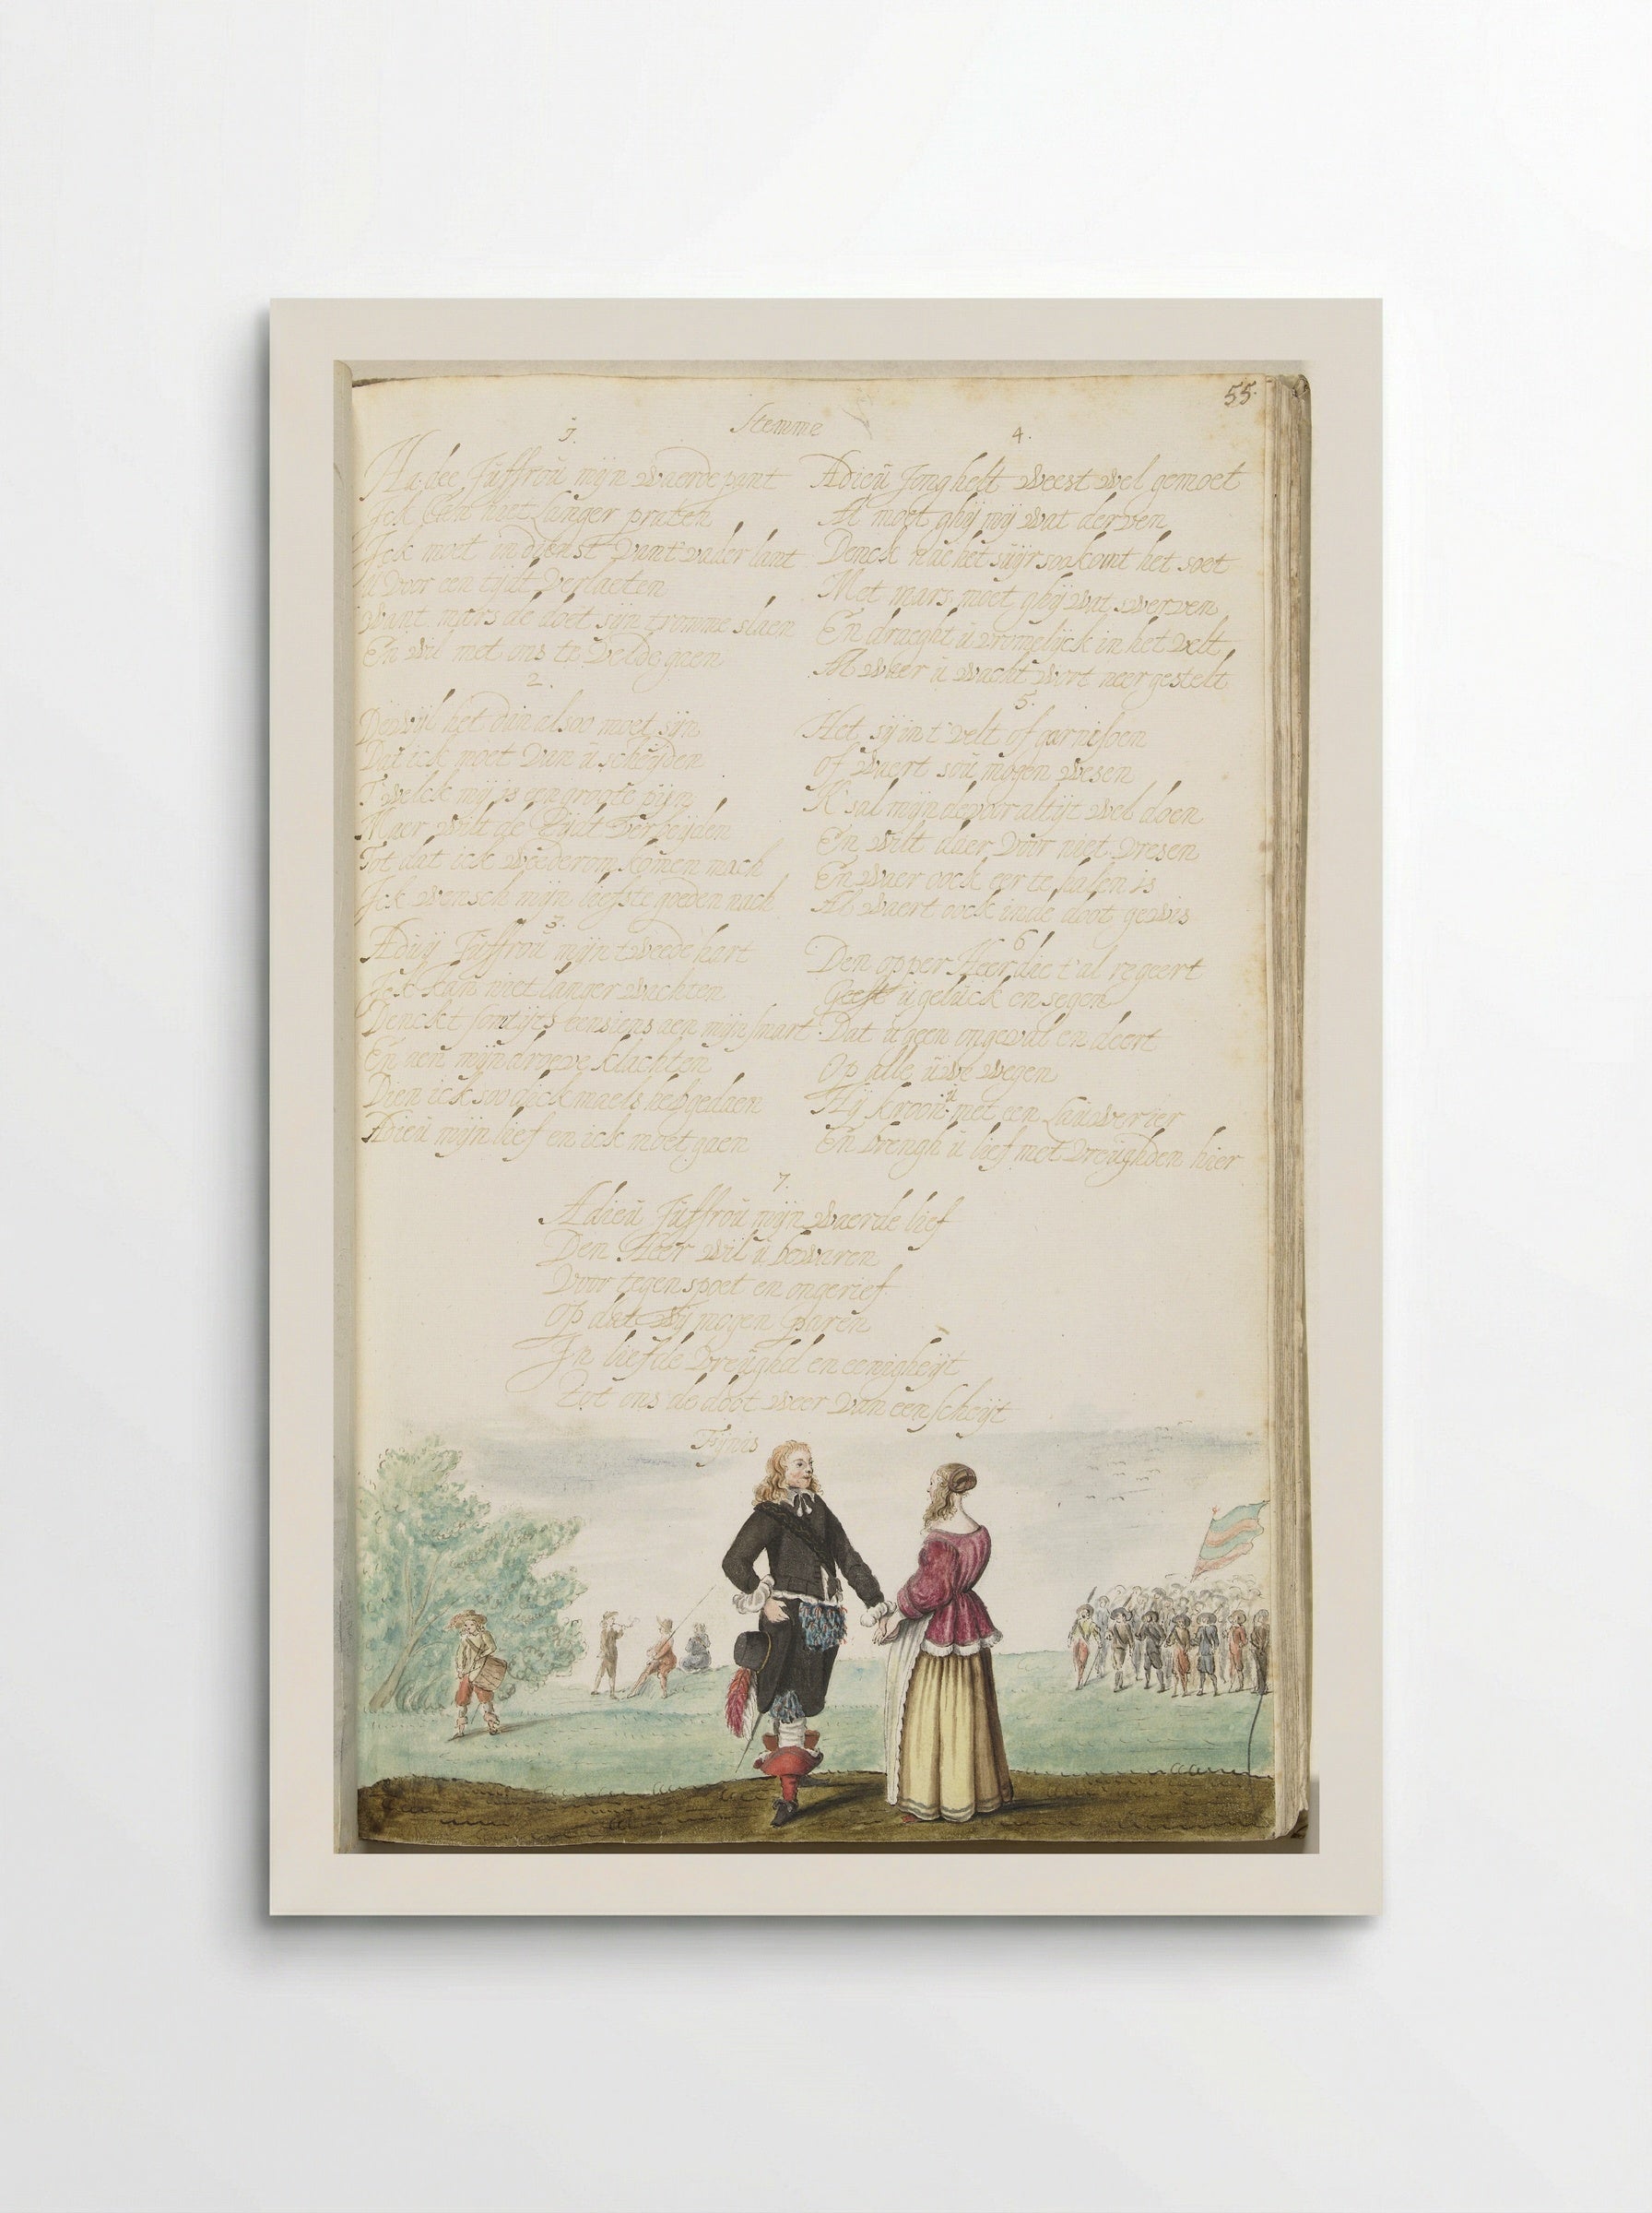 55.
Stemme
1.
Adee Juffrou mijn waerde pant
Ick kan niet langer praten
Ick moet in dienst vant vaderlant
U voor een tijdt verlaeten
Want mars de doet sijn tromme slaen
En wil met ons te velde gaen
2.
Dewijl het dan alsoo moet sijn
Dat ick moet van ü scheijden
T'welck mij is een groote pijn
Maer wilt de tijdt verbeijden
Tot dat ick wederom komen mach
Ick wensch mijn liefste goeden nach
3.
Aduij Juffroü mijn tweede hart
Ick kan niet langer wachten
Denckt somtijts eensiens aen mijn smart
En aen mijn droeve klachten
Dien ick soo dick maels heb gedaen
Adieü mijn lief en ick moet gaen
4.
Adieü Jonghelt weest wel gemoet
Al moet ghij mij wat derven
Denck nae het süyr soo komt het soet
Met mars moet ghij wat swerven
En draeght ü vromelijck in het velt
Al waer ü wacht wort neer gestelt
5.
Het sij in t velt of garnisoen
of waert soü mogen wesen
K'sal mijn devoor altijt wel doen
En wilt daer voor niet vresen
En waer oock eer te halen is
Al waert oock inde doot gewis
6
Den opper Heer die t'al regeert
Geeft ü gelück en segen
Dat ü geen ongeval en deert
Op alle üwe wegen
Hij kroon ü met een Laüwerier
En brengh ü lief met vreüghden hier
7.
Adieü Juffroü mijn waerde lief
Den Heer wil ü bewaren
Voor tegenspoet en ongerief
Op dat wij mogen paren
In liefde vreüghd en eenigheijt
Tot ons de doot weer van een scheijt
Fijnis